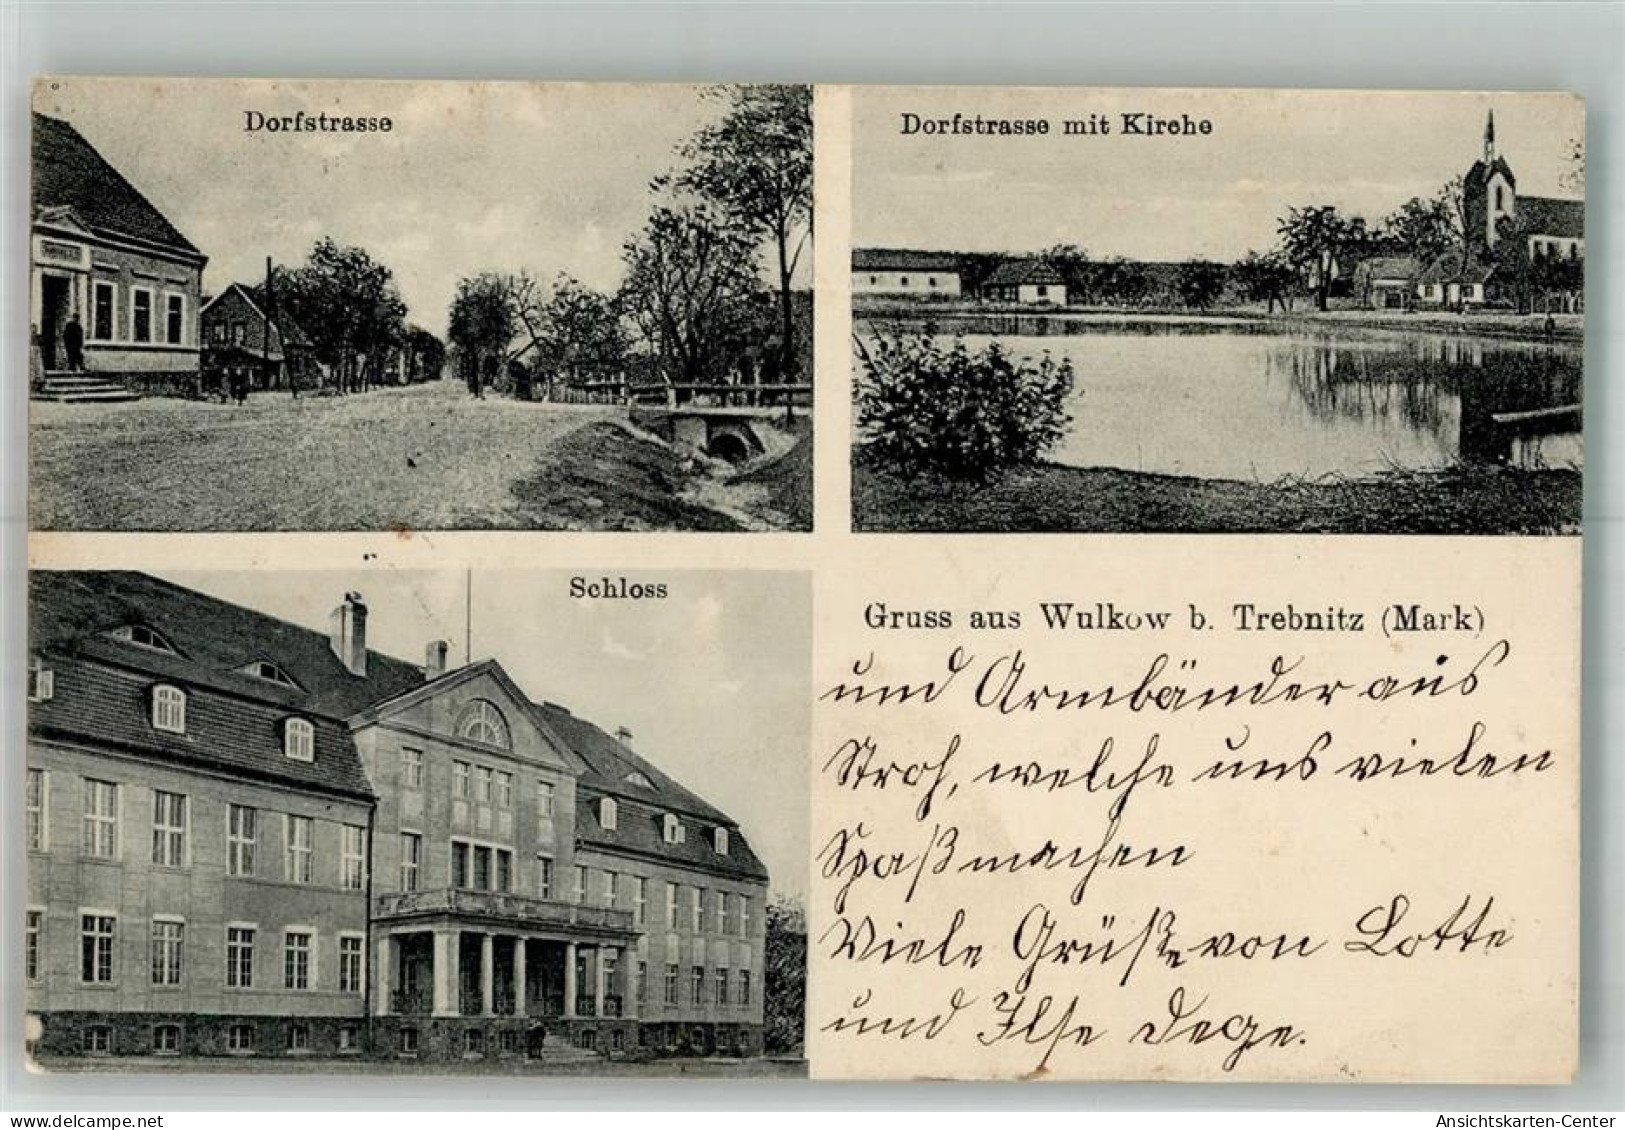 Dorfstrasse
Dorfstrasse mit Kirche
Schloss
Gruss aus Wulkow b. Trebnitz (Mark)
und Armbänder aus
Stroh, welche uns vielen
Spaß machen
Viele Grüße von Lotte
und Ilse Dege.
Ansichtskarten-Center